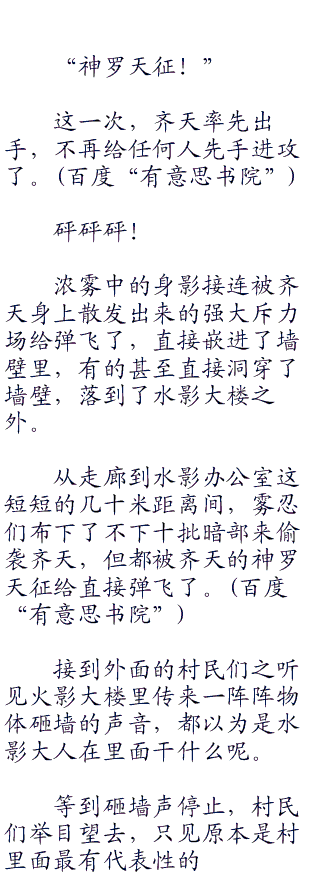 “神罗天征！”
这一次，齐天率先出
手，不再给任何人先手进攻
了。(百度“有意思书院”)
砰砰砰！
浓雾中的身影接连被齐
天身上散发出来的强大斥力
场给弹飞了，直接嵌进了墙
壁里，有的甚至直接洞穿了
墙壁，落到了水影大楼之
外。
从走廊到水影办公室这
短短的几十米距离间，雾忍
们布下了不下十批暗部来偷
袭齐天，但都被齐天的神罗
天征给直接弹飞了。(百度
“有意思书院”)
接到外面的村民们之听
见火影大楼里传来一阵阵物
体砸墙的声音，都以为是水
影大人在里面干什么呢。
等到砸墙声停止，村民
们举目望去，只见原本是村
里面最有代表性的